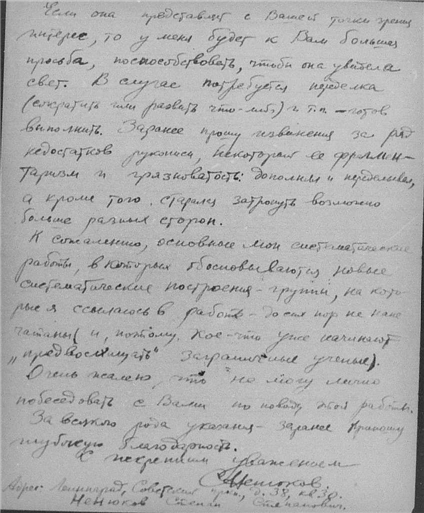 Если она представляет с Вашей точки зрения
интерес, то у меня будет к Вам большая
просьба, поспособствовать, чтобы она увидела
свет. В случае потребуется переделка
(сократить или развить что-либо) и т.п. – готов
выполнить. Заранее прошу извинения за ряд
недостатков рукописи, некоторый ее
и грязноватость: дополнял и переделывал,
а кроме того старался затронуть возможно
больше разных сторон.
К сожалению, основные мои систематические
работы, в которых обосновываются новые
систематические построения – группы, на кото-
рые я ссылаюсь в работе – до сих пор не напе-
чатаны (и, поэтому, кое-что уже начинают
заграничные ученые).
Очень жалею, что не могу лично
побеседовать с Вами по поводу этой работы.
За всякого рода указания – заранее приношу
глубокую благодарность.
С искренним уважением
Адрес: Ленинград, Советский д. 38, кв. 30.
Ненюков